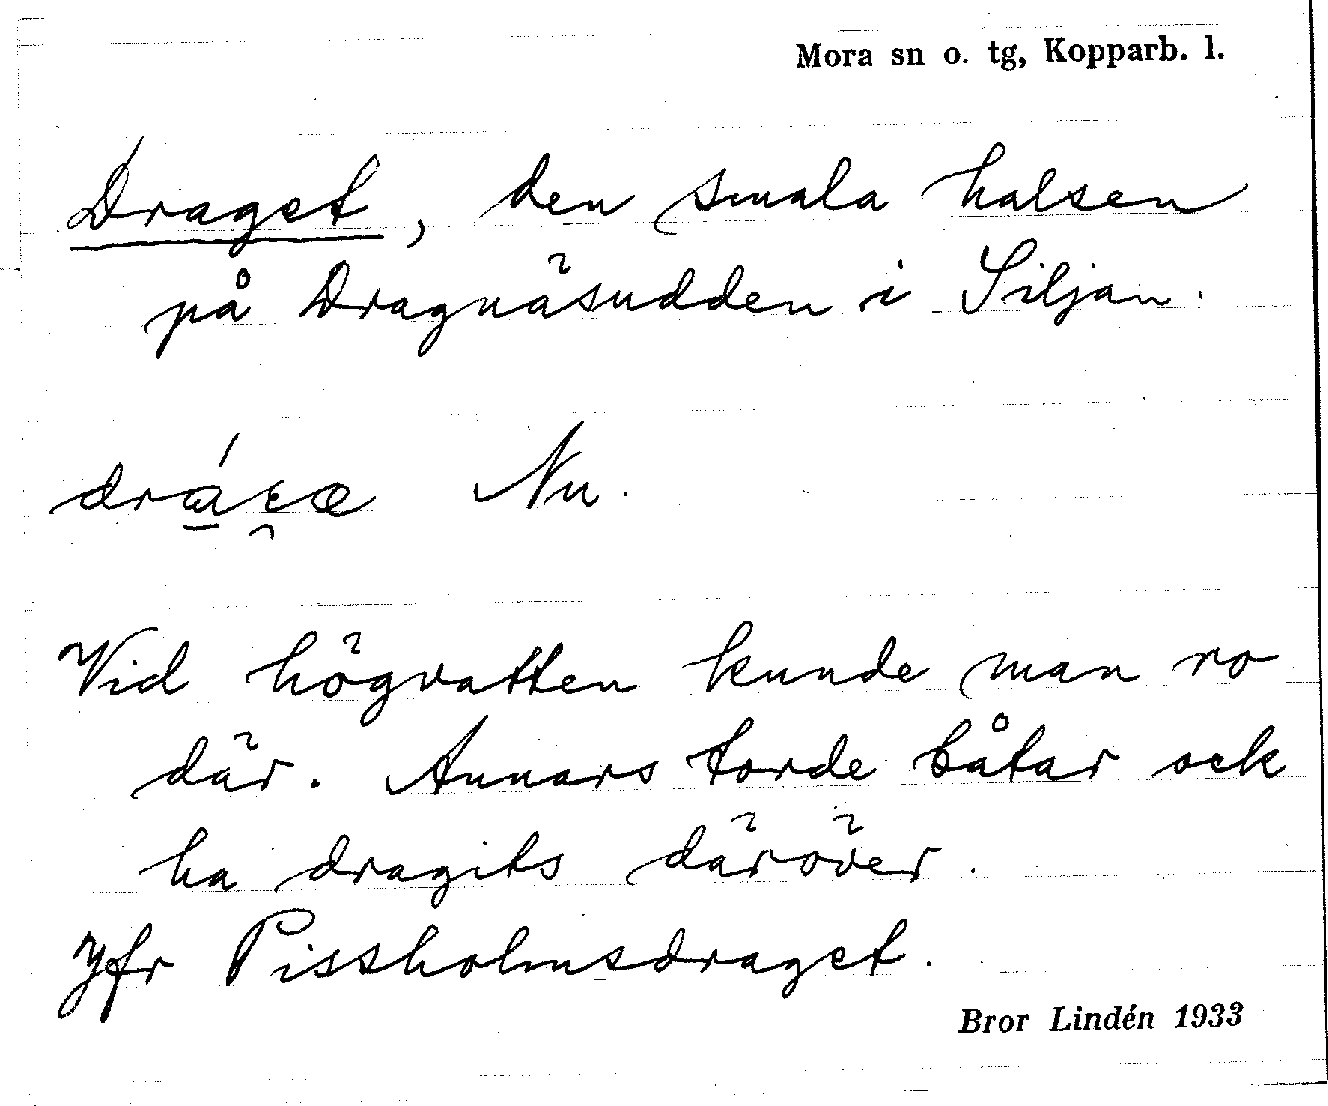 Mora sn o. tg, Kopparb. l.
Draget, den smala halsen
på Dragnäsudden i Siljan.
Nu.
Vid högvatten kunde man ro
där. Annars torde båtar ock
ha dragits däröver.
Jfr Pissholmsdraget.
Bror Lindén 1933